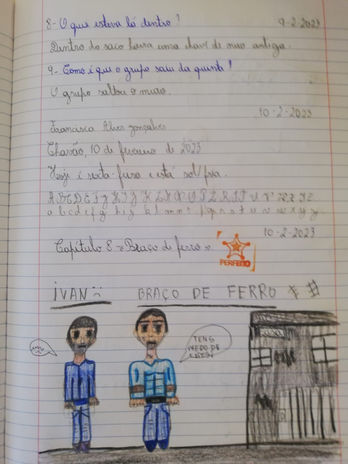 8- O que estava lá dentro?
9-2-2023
Dentro do saco havia uma chave de muro antiga.
9- Como é que o grupo saiu da quinta?
O grupo saltou o muro.
10-2-2023
Francisca Alves Gonçalves
Chavão, 10 de fevereiro de 2023
Hoje é sexta-feira e está sol/fria.
10-2-2023
Capítulo 8 "Braço de ferro"
PERFEITO
IVAN
BRAÇO DE FERRO
TENS MEDO DE